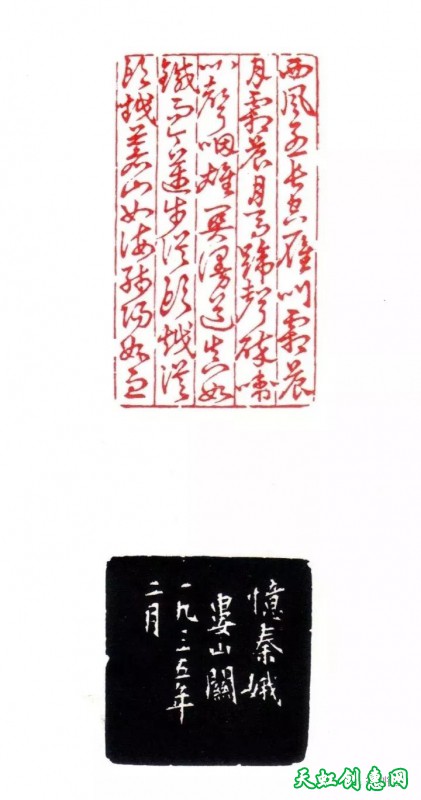 西風烈长空雁叫霜晨
月霜晨月马蹄聲碎喇
叭聲咽雄关漫道真如
鐵而今邁步从头越从
头越蒼山如海残阳如血
憶秦娥
婁山關
一九三五年
二月
天虹创意网